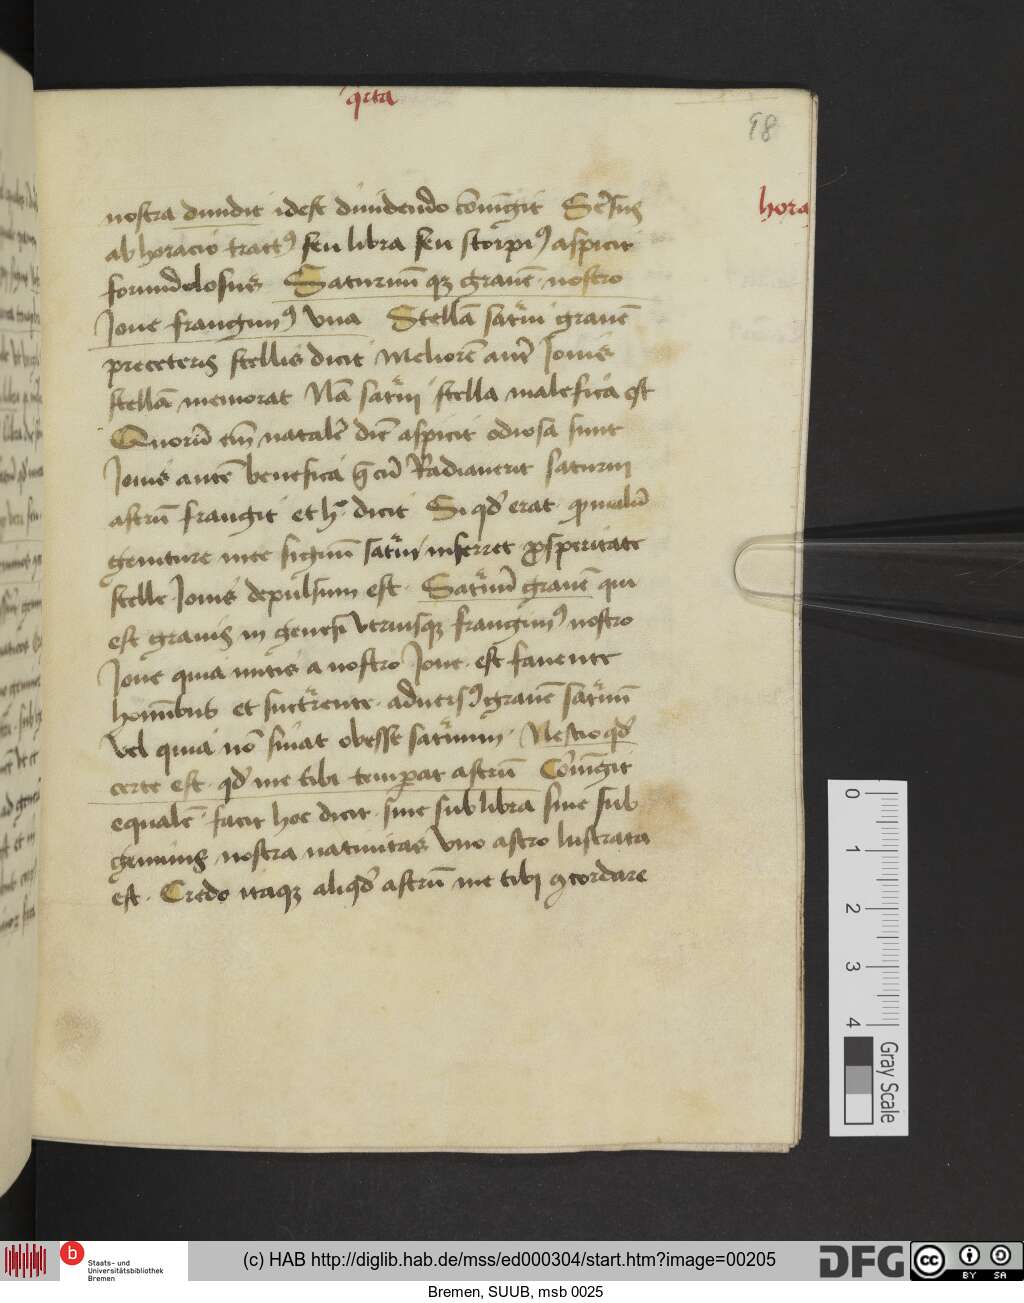 qrta
98
hora
nostra diuidit idest diuidendo coniūgit Sēsus
ab horacio tractꝰ seu libra seu scorpiꝰ aspicit
formidolosus Saturnūqꝫ grauē nostro
Ioue frangimꝰ vna Stellā satͬni grauē
preceteris stellis dicit Meliorē autē Iouis
stellā memorat Nā satͬni stella malefica est
Quorū em̄ natalē diē aspicit odiosa sunt
Iouis autē benefica cū Radiauerit saturni
astrū frangit et dicit Si qd̓ erat malū
geniture mee signū satͬni inferret ꝓsperitate
stelle Iouis depulsum est Satͬnū grauē qui
est grauis in genesi vtriusqꝫ frangimꝰ nostro
Ioue quia mitis a nostro Ioue est fauente
hominibus et succͬrente aduersꝰ grauē satͬnū
vel quia nō sinat obesse satͬnum Nescio qd̓
certe est qd̓ me tibi temꝑat astrū Coniūgit
equalē facit hoc dicit siue sub libra siue sub
geminis nostra natiuitas vno astro lustrata
est Credo itaqꝫ aliqd̓ astrū me tibi ꝯcordare
0
1
2
3
4
Gray Scale
b
Staats- und
Universitätsbibliothek
Bremen
(c) HAB http://diglib.hab.de/mss/ed000304/start.htm?image=00205
DFG
cc
BY SA
Bremen, SUUB, msb 0025